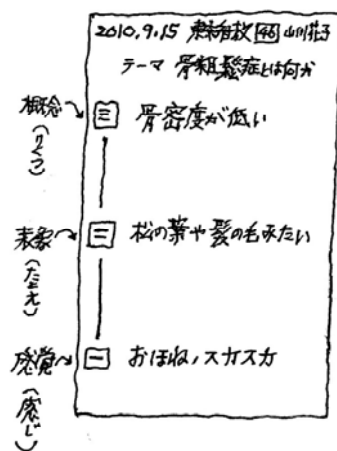 2010.9.15 東京有教 46 山川花子
テーマ 骨粗鬆症とは何か
概念
(りくつ)
三 骨密度が低い
表象
(たとえ)
二 松の葉や髪の毛みたい
感覚
(感じ)
一 おほね、スカスカ